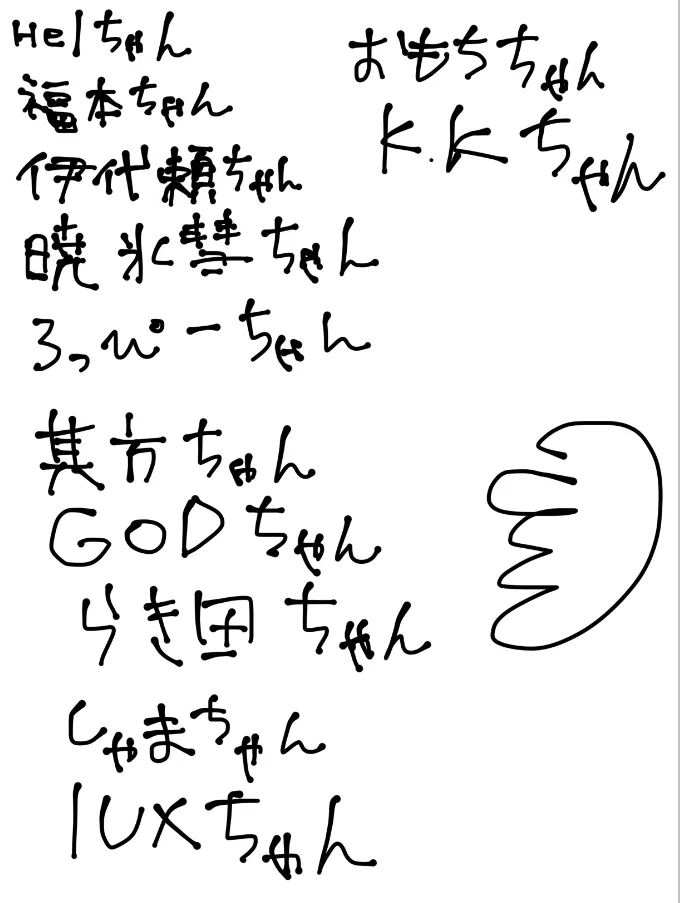 Helちゃん
福本ちゃん
伊代頼ちゃん
暁氷彗ちゃん
ろっぴーちゃん
其方ちゃん
GODちゃん
らき団ちゃん
しゃまちゃん
IUXちゃん
おもちちゃん
K.Kちゃん